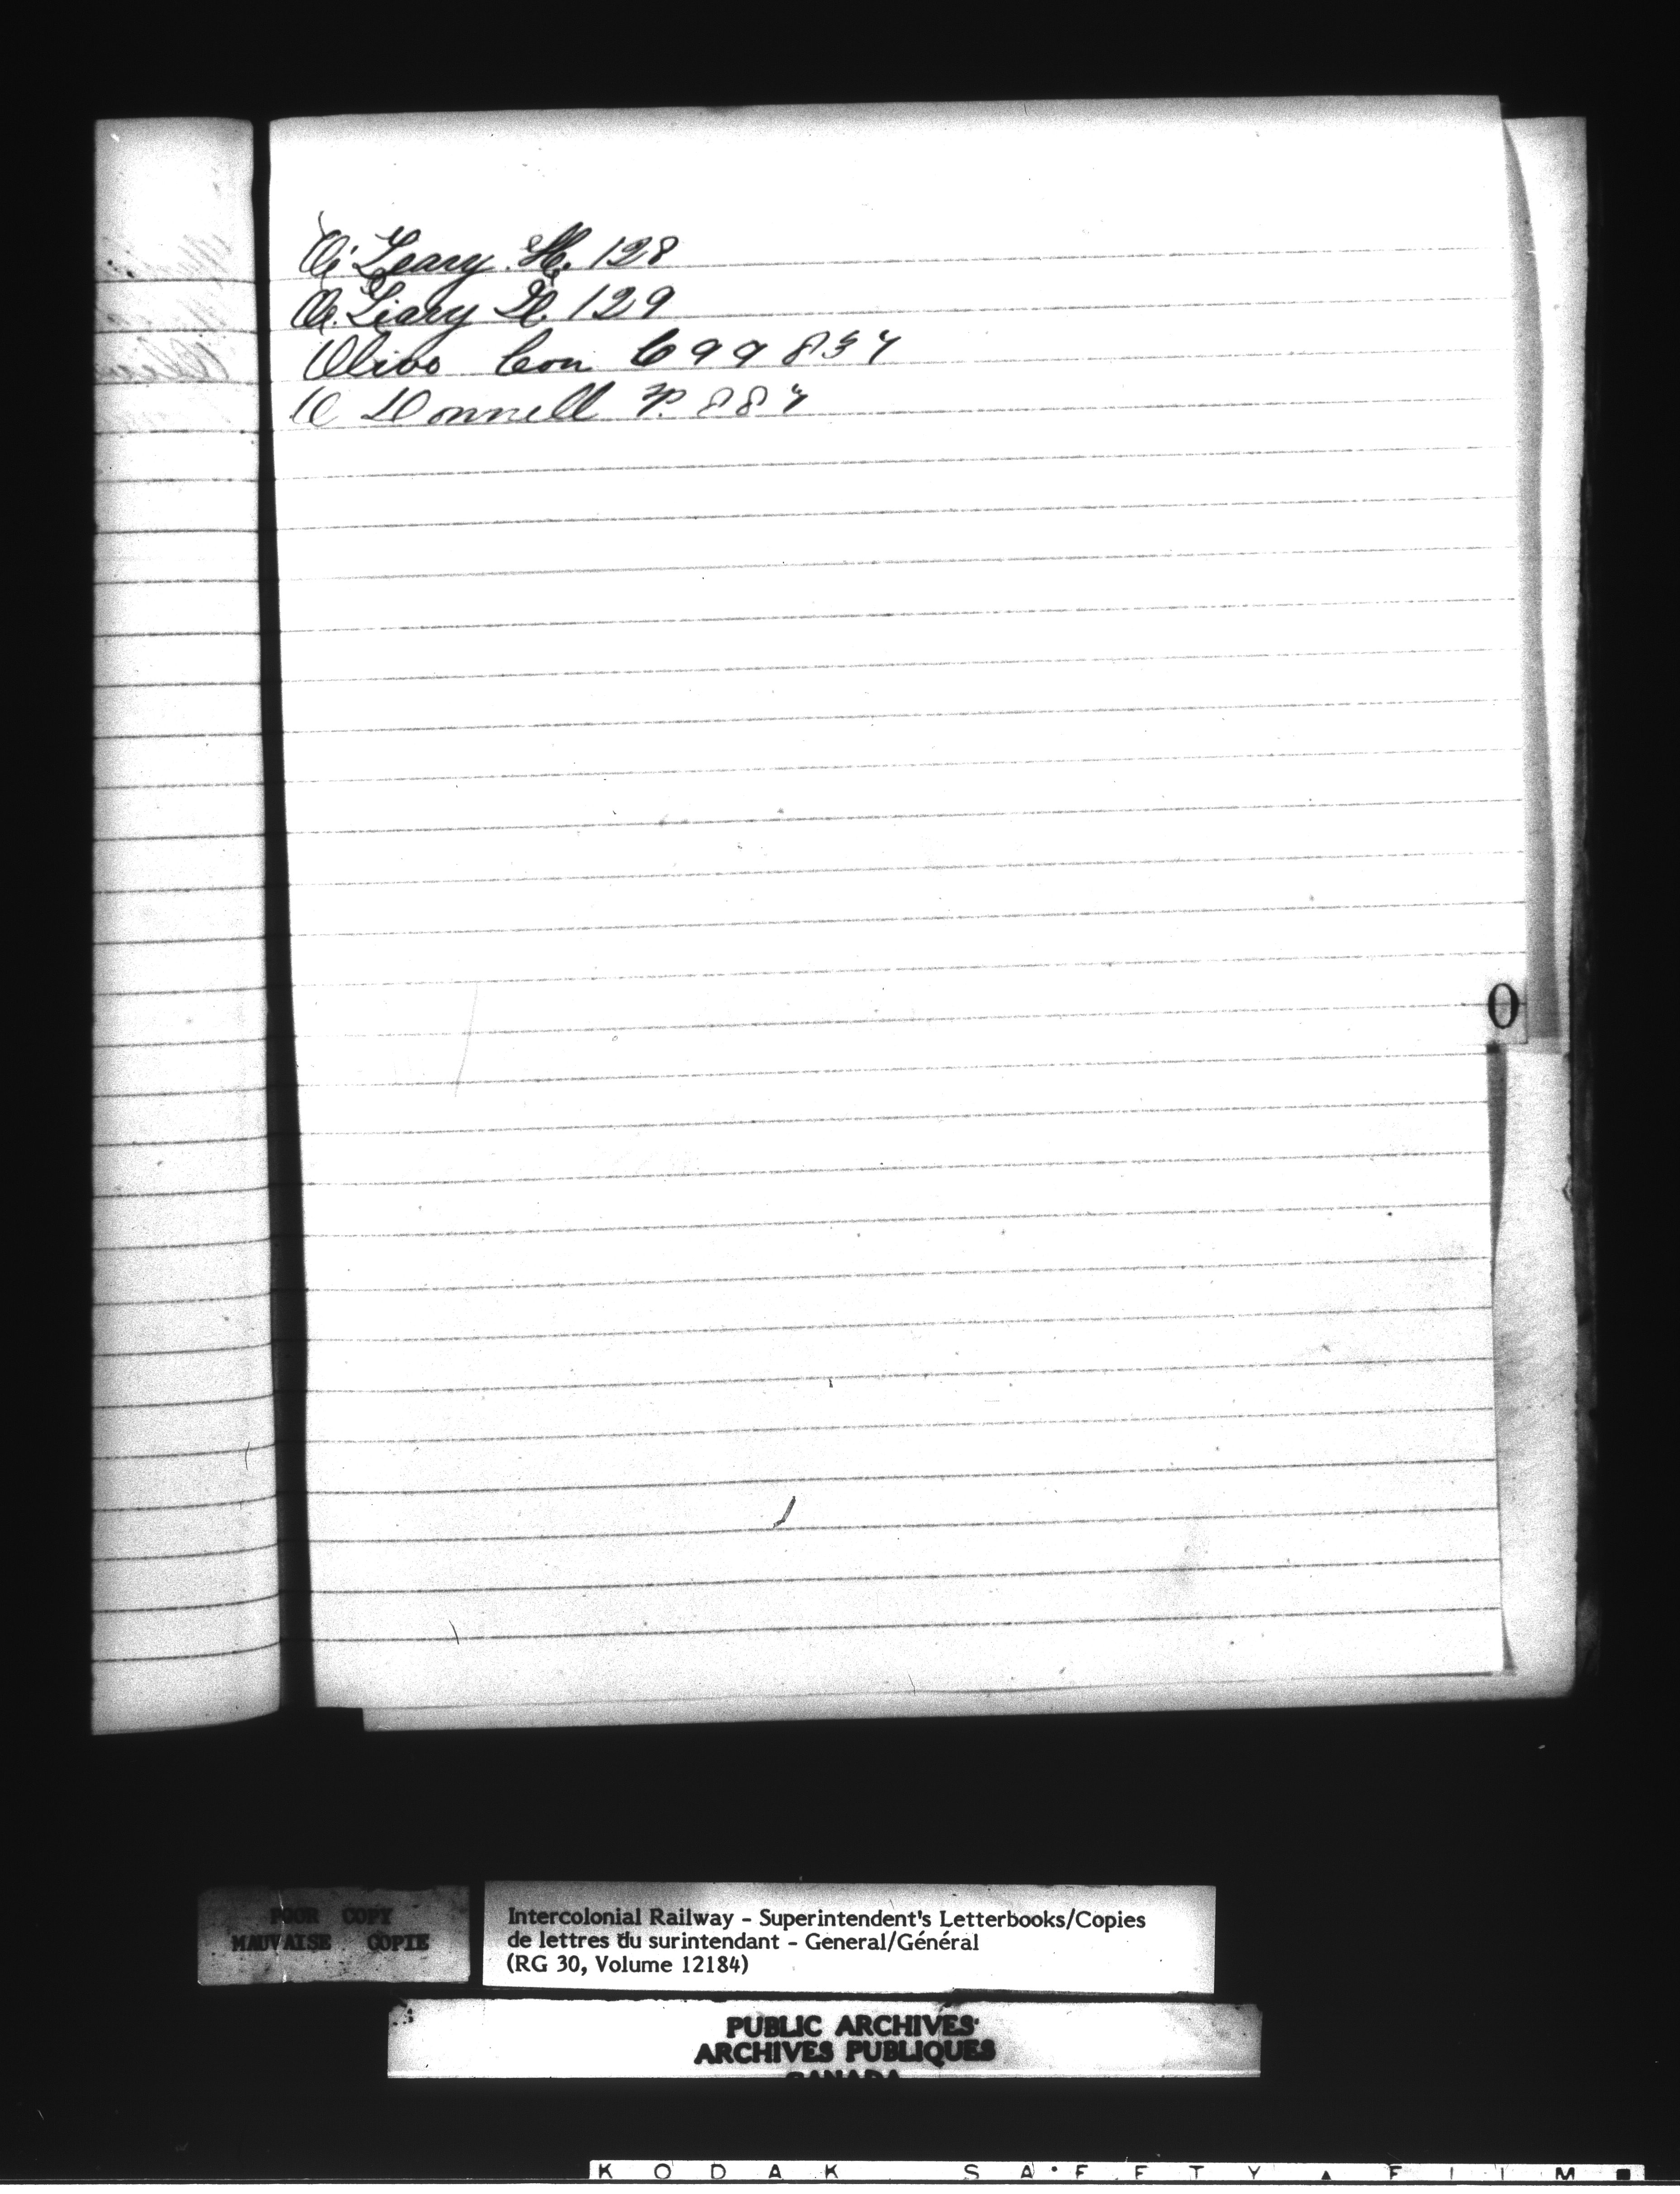 O'Leary. H. 128
O. Liary H. 129
Olive Con 699 837
O Donnell P. 887
0
POOR COPY
MAUVAISE COPIE
Intercolonial Railway - Superintendent's Letterbooks/Copies
de lettres du surintendant - General/Général
(RG 30, Volume 12184)
PUBLIC ARCHIVES
ARCHIVES PUBLIQUES
CANADA
KODAK SAFETY FILM